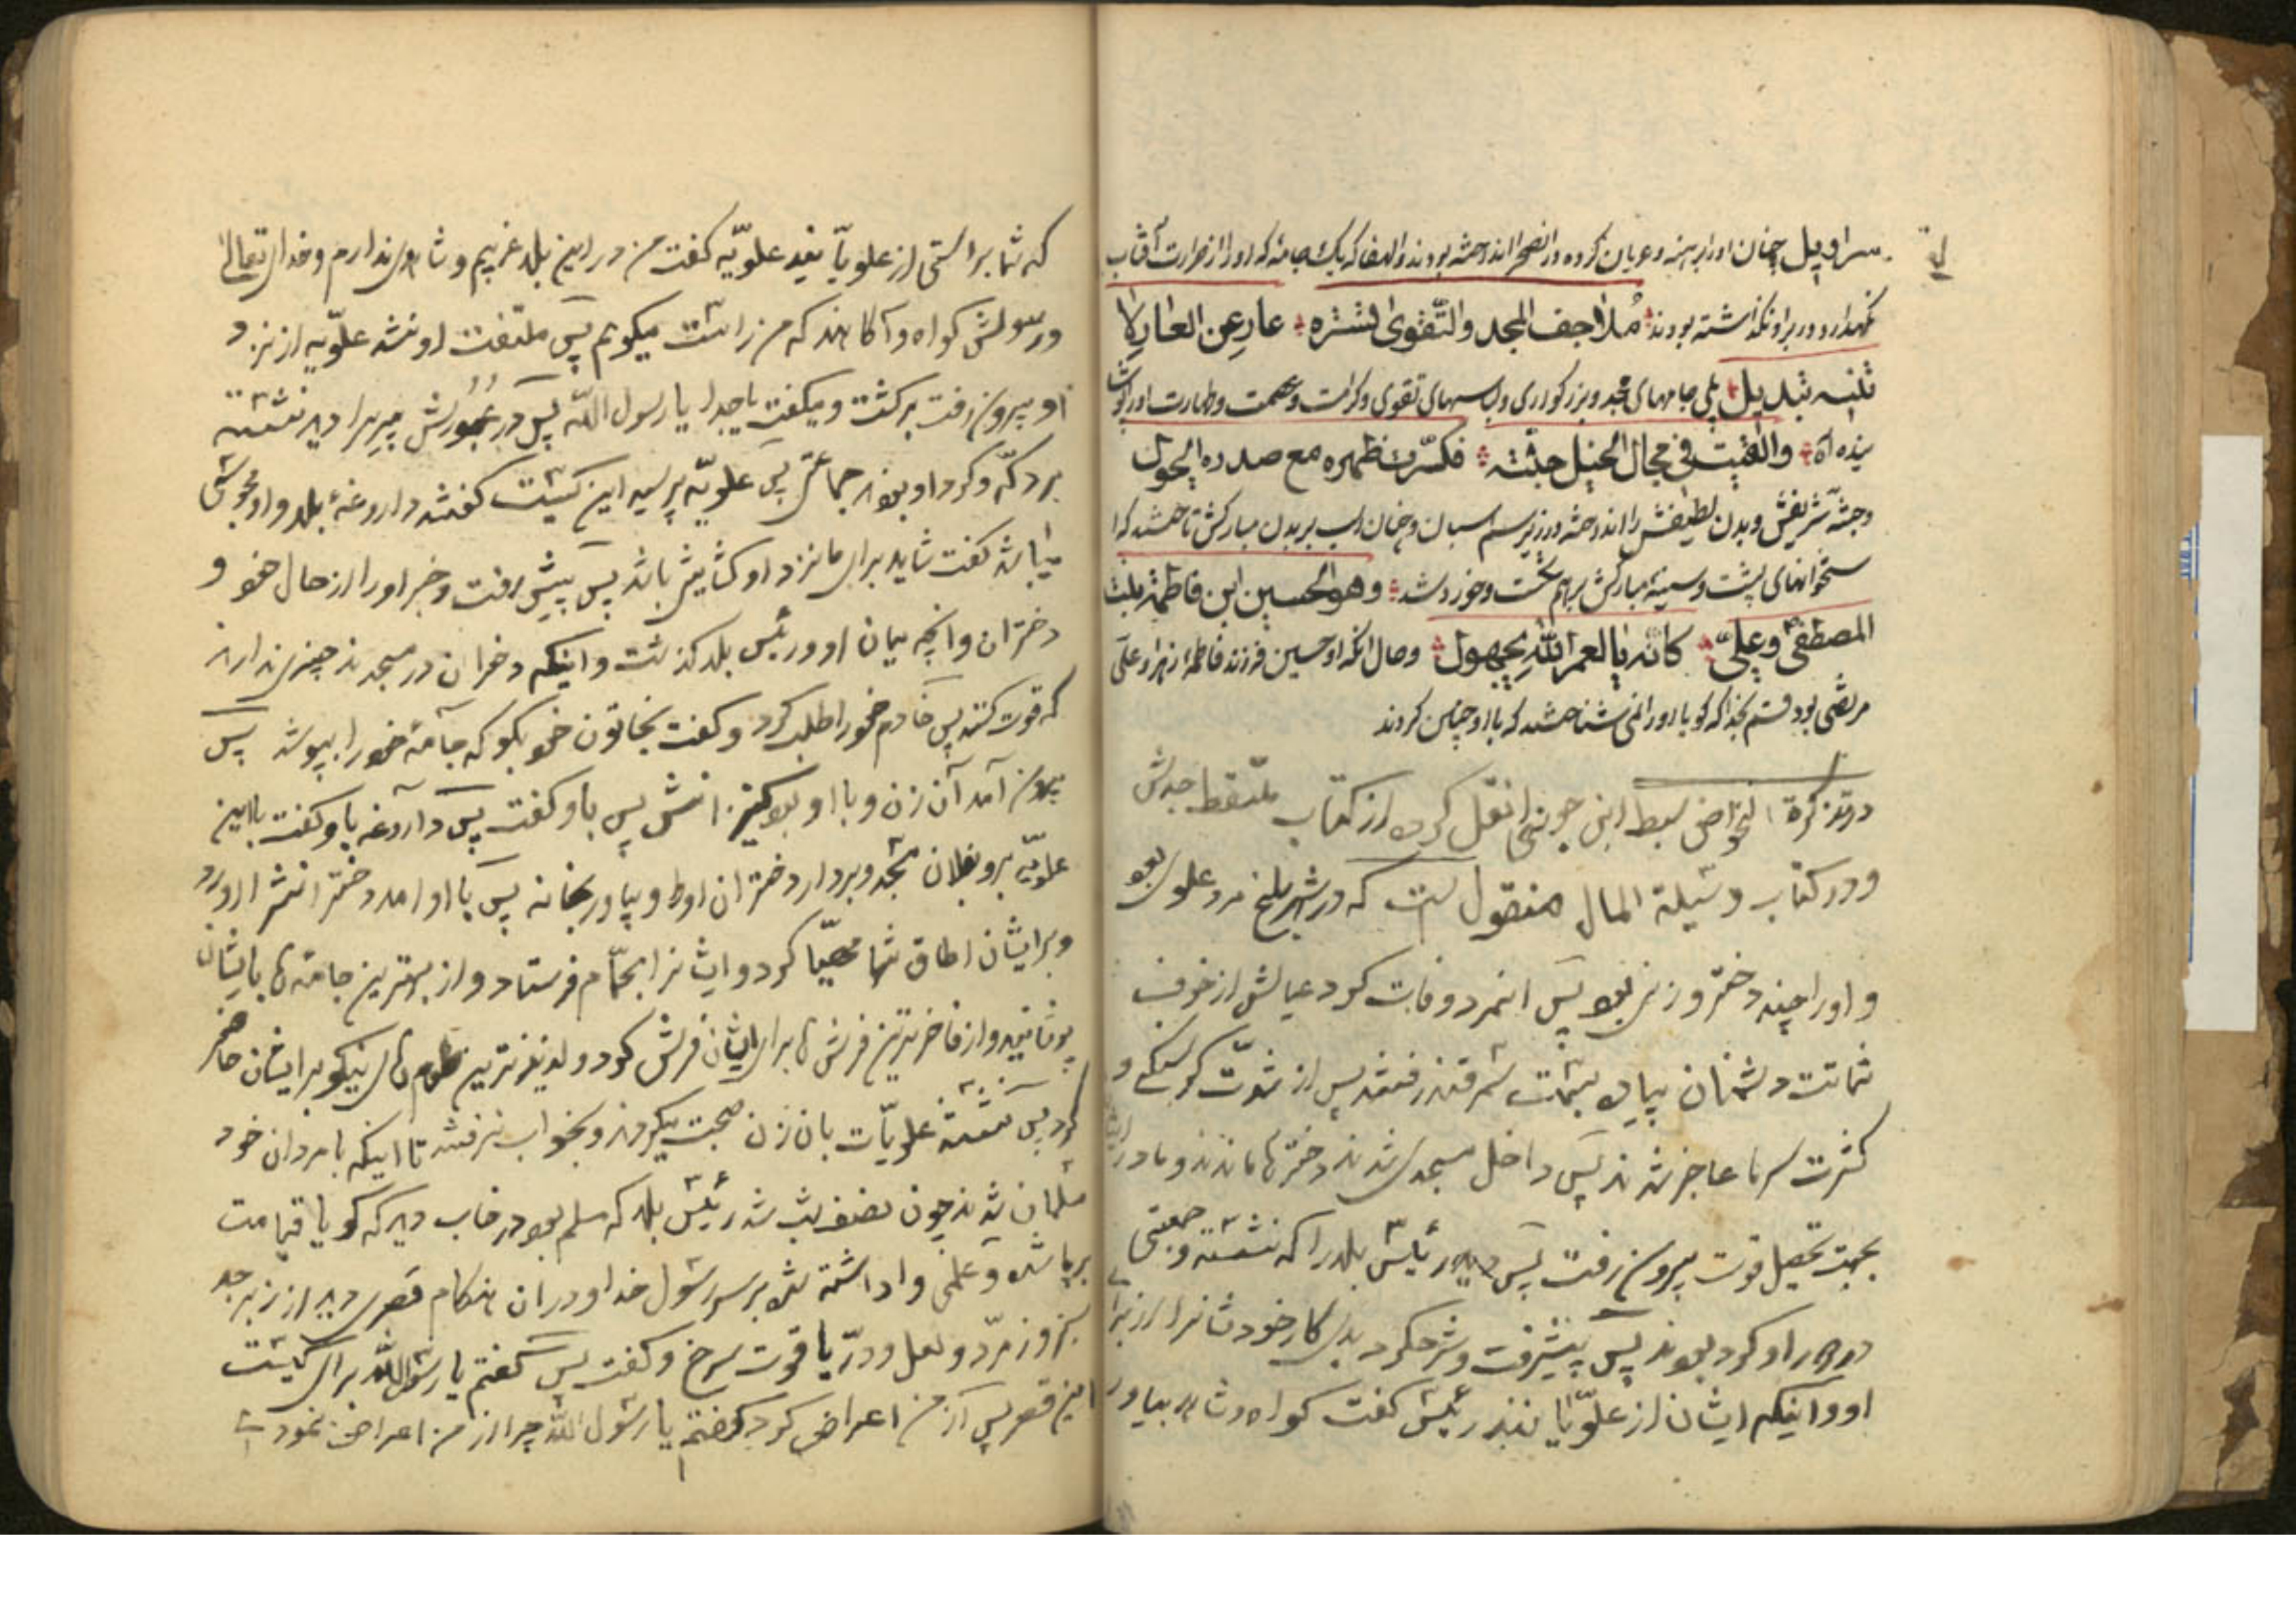 سرابیل چنان او را برهنه و عریان کرده در آن صحرا انداخته بودند و الله که یک جامه که او را از حرارت آفتاب
نگهدارد در بر او نگذاشته بودند ملاحف المجد والتقوی تستره عار عن العار لا
تلبسه تبدیل بلی جامهای مجد و بزرگواری و لباسهای تقوی و کرامت و عصمت و طهارت او را
والقیت فی مجال الخیل جثته فکسرت ظهره مع صدره الخیول
و جثه شریفش و بدن لطیفش را انداخته در زیر سم اسبان و چنان اسب بر بدن مبارکش تاختند که
ستخوانهای پشت و سینه مبارکش بر هم شکست و خورد شد وهو الحسین ابن فاطمة بنت
المصطفی وعلی کانه یا لعمر الله مجهول و حال انکه او حسین فرزند فاطمه زهرا و علی
مرتضی بود قسم بخدا که گویا او را نمی شناختند که با او چنین کردند
در تذکرة الخواص سبط ابن جوزی نقل کرده از کتاب ملتقط جدش
و در کتاب وسیلة المال منقول است که در شهر بلخ مرد علوی بود
و او را چند دختر و زنی بود پس انمرد وفات کرد عیالش از خوف
شماتت دشمنان پیاده بسمت سمرقند رفتند پس از شدت گرسنگی و
کثرت سرما عاجز شدند پس داخل مسجدی شدند دخترها ماندند و مادر
بجهت تحصیل قوت بیرون رفت پس دید رئیس بلد را که نشسته و جمعی
دور او گرد بودند پس پیش رفت و شرح کرد بدی کار خودشانرا از برای
او و اینکه ایشان از علویا نند رئیس گفت گواه و شاهد بیاور
که شما براستی از علویا نید علویه گفت من در این بلد غریبم و شاهدی ندارم و خدای تعالی
و رسولش گواه و آگاهند که من راست میگویم پس ملتفت او نشد علویه از نزد
او بیرون رفت برگشت و میگفت یا جدا یا رسول الله پس در عبورش پیری را دید نشسته
بر دکه و گرد او بود جماعتی پس علویه پرسید این کیست گفتند داروغه بلد و او مجوسی
میباشد گفت شاید برای ما نزد او گشایش باشد پس پیش رفت و خبر او را از حال خود و
دختران و انچه میان او و رئیس بلد گذشت و اینکه دختران در مسجدند چیزی ندارند
که قوت کنند پس خادم خود را طلب کرد و گفت بخاتون خود بگو که جامه خود را بپوشد پس
بیرون آمد آن زن و با او بود کنیزانش پس باو گفت پس داروغه باو گفت با این
علویه برو بفلان مسجد و بردار دختران او را و بیاور بخانه پس با او آمد دخترانش را اورد
و برایشان اطاق تنها مهیا کرد و ایشانرا بحمام فرستاد و از بهترین جامه ها بایشان
پوشانید و از فاخرترین فرش ها برای ایشان فرش کرد و لذیذترین طعام های نیکو برایشان حاضر
کرد پس نشسته علویات بان زن صحبت میکردند و بخواب نرفتند تا اینکه با مردان خود
مسلمان شدند چون نصف شب شد رئیس بلد که مسلم بود در خواب دید که گویا قیامت
برپا شده و علمی واداشته شده بر سر رسول خدا و در آن هنگام قصری دید از زبرجد
سبز و زمرد و لعل و در و یاقوت سرخ و گفت پس گفتم یا رسول الله برای کیست
این قصر پس از من اعراض کرد گفتم یا رسول الله چرا از من اعراض نمودی